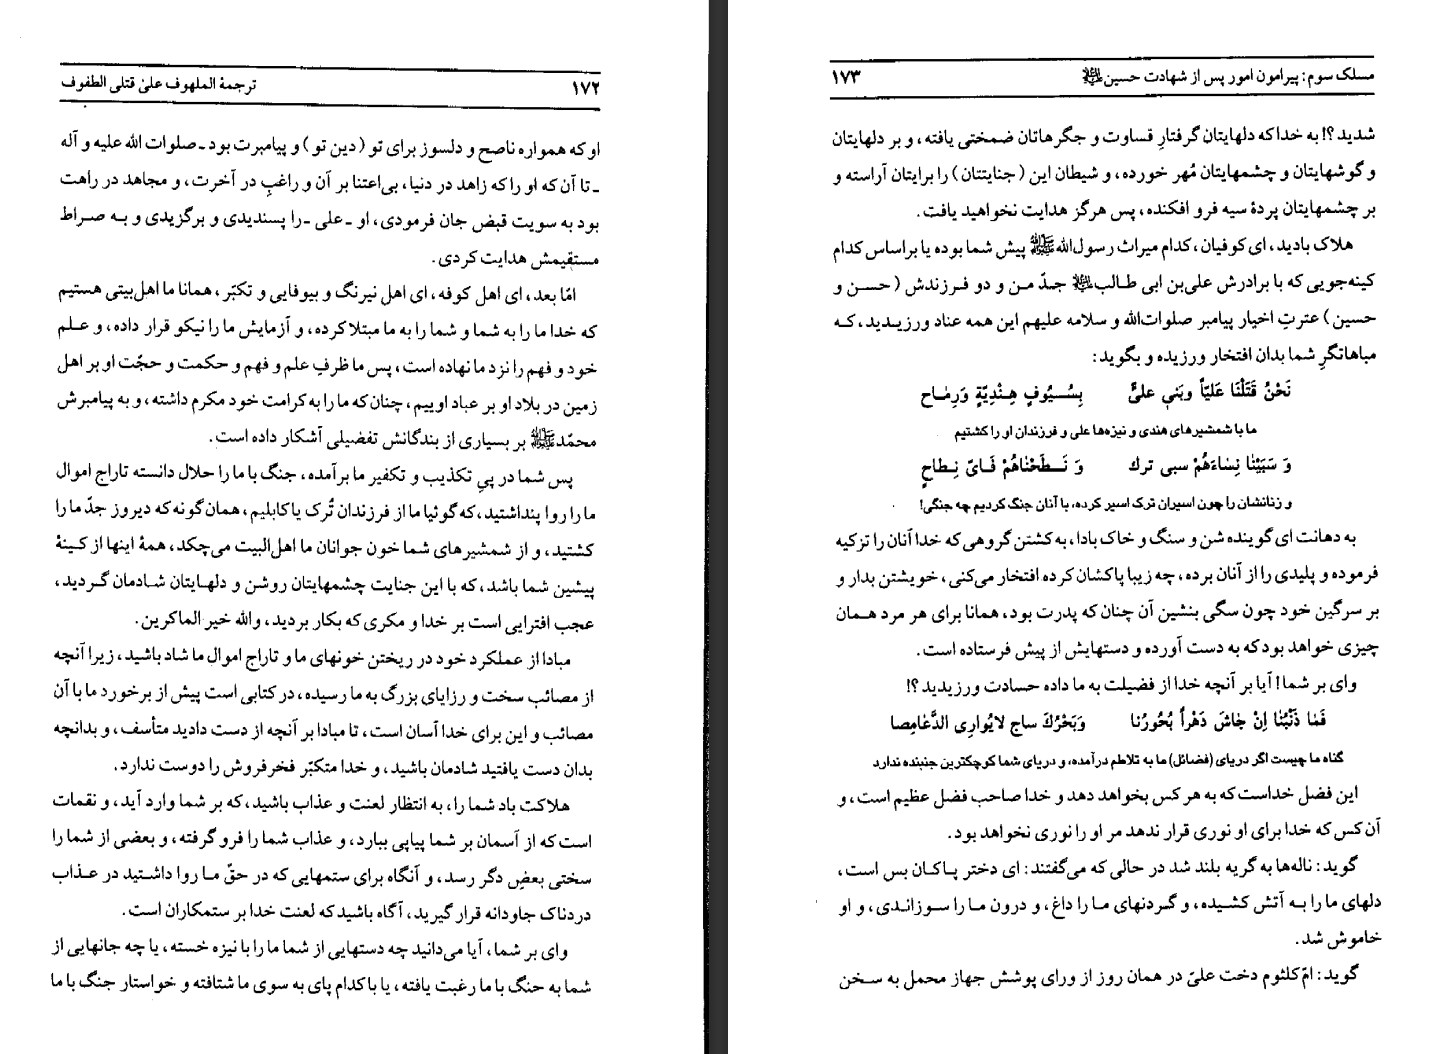 ۱۷۲ ترجمهٔ الملهوف علیٰ قتلی الطفوف
او که همواره ناصح و دلسوز برای تو (دین تو) و پیامبرت بود ـ صلوات الله علیه و آله
ـ تا آن که او را که زاهد در دنیا، بی‌اعتنا بر آن و راغبِ در آخرت، و مجاهد در راهت
بود به سویت قبض جان فرمودی، او ـ علی ـ را پسندیدی و برگزیدی و به صراط
مستقیمش هدایت کردی.
امّا بعد، ای اهل کوفه، ای اهل نیرنگ و بیوفایی و تکبّر، همانا ما اهل‌بیتی هستیم
که خدا ما را به شما و شما را به ما مبتلا کرده، و آزمایش ما را نیکو قرار داده، و علم
خود و فهم را نزد ما نهاده است، پس ما ظرفِ علم و فهم و حکمت و حجّت او بر اهل
زمین در بلاد او بر عباد اوییم، چنان‌که ما را به کرامت خود مکرم داشته، و به پیامبرش
محمّدﷺ بر بسیاری از بندگانش تفضیلی آشکار داده است.
پس شما در پیِ تکذیب و تکفیر ما برآمده، جنگ با ما را حلال دانسته تاراج اموال
ما را روا پنداشتید، که گوئیا ما از فرزندان تُرک یا کابلیم، همان گونه که دیروز جدّ ما را
کشتید، و از شمشیرهای شما خون جوانان ما اهل‌البیت می‌چکد، همهٔ اینها از کینهٔ
پیشین شما باشد، که با این جنایت چشمهایتان روشن و دلهایتان شادمان گردید،
عجب افترایی است بر خدا و مکری که بکار بردید، والله خیر الماکرین.
مبادا از عملکرد خود در ریختن خونهای ما و تاراج اموال ما شاد باشید، زیرا آنچه
از مصائب سخت و رزایای بزرگ به ما رسیده، در کتابی است پیش از برخورد ما با آن
مصائب و این برای خدا آسان است، تا مبادا بر آنچه از دست دادید متأسف، و بدانچه
بدان دست یافتید شادمان باشید، و خدا متکبّر فخرفروش را دوست ندارد.
هلاکت باد شما را، به انتظار لعنت و عذاب باشید، که بر شما وارد آید، و نقمات
است که از آسمان بر شما پیاپی ببارد، و عذاب شما را فرو گرفته، و بعضی از شما را
سختی بعضِ دگر رسد، و آنگاه برای ستمهایی که در حقّ ما روا داشتید در عذاب
دردناک جاودانه قرار گیرید، آگاه باشید که لعنت خدا بر ستمکاران است.
وای بر شما، آیا می‌دانید چه دستهایی از شما ما را با نیزه خسته، یا چه جانهایی از
شما به جنگ با ما رغبت یافته، یا با کدام پای به سوی ما شتافته و خواستار جنگ با ما
مسلک سوم: پیرامون امور پس از شهادت حسین ۱۷۳
شدید؟! به خدا که دلهایتان گرفتارِ قساوت و جگرهاتان ضمختی یافته، و بر دلهایتان
و گوشهایتان و چشمهایتان مُهر خورده، و شیطان این (جنایتتان) را برایتان آراسته و
بر چشمهایتان پردهٔ سیه فرو افکنده، پس هرگز هدایت نخواهید یافت.
هلاک بادید، ای کوفیان، کدام میراث رسول‌اللهﷺ پیش شما بوده یا براساس کدام
کینه‌جویی که با برادرش علی‌بن ابی طالب جدّ من و دو فرزندش (حسن و
حسین) عترتِ اخیار پیامبر صلوات‌الله و سلامه علیهم این همه عناد ورزیدید، که
مباهاتگرِ شما بدان افتخار ورزیده و بگوید:
نَحْنُ قَتَلْنَا عَلیّاً وبَني عليٍّ بِسُیُوفٍ هِنْدِیّةٍ وَرِمٰاح
ما با شمشیرهای هندی و نیزه‌ها علی و فرزندان او را کشتیم
وَ سَبَیْنٰا نِسٰاءَهُمْ سبی ترك وَ نَطَحْنٰاهُمْ فَـايّ نِـطاحٍ
و زنانشان را چون اسیران ترک اسیر کرده، با آنان جنگ کردیم چه جنگی!
به دهانت ای گوینده شن و سنگ و خاک بادا، به کشتن گروهی که خدا آنان را تزکیه
فرموده و پلیدی را از آنان برده، چه زیبا پاکشان کرده افتخار می‌کنی، خویشتن بدار و
بر سرگین خود چون سگی بنشین آن چنان که پدرت بود، همانا برای هر مرد همان
چیزی خواهد بود که به دست آورده و دستهایش از پیش فرستاده است.
وای بر شما! آیا بر آنچه خدا از فضیلت به ما داده حسادت ورزیدید؟!
فَمٰا ذَنْبُنٰا اِنْ جٰاشَ دَهْراً بُحُورُنا وَبَحْرُكَ ساج لایُوارِی الدَّعٰامِصا
گناه ما چیست اگر دریای (فضائل) ما به تلاطم درآمده، و دریای شما کوچکترین جنبنده ندارد
این فضل خداست که به هر کس بخواهد دهد و خدا صاحب فضل عظیم است، و
آن کس که خدا برای او نوری قرار ندهد مر او را نوری نخواهد بود.
گوید: ناله‌ها به گریه بلند شد در حالی که می‌گفتند: ای دختر پاکان بس است،
دلهای ما را به آتش کشیده، و گردنهای ما را داغ، و درون ما را سوزاندی، و او
خاموش شد.
گوید: امّ‌کلثوم دخت علیّ در همان روز از ورای پوشش جهاز محمل به سخن